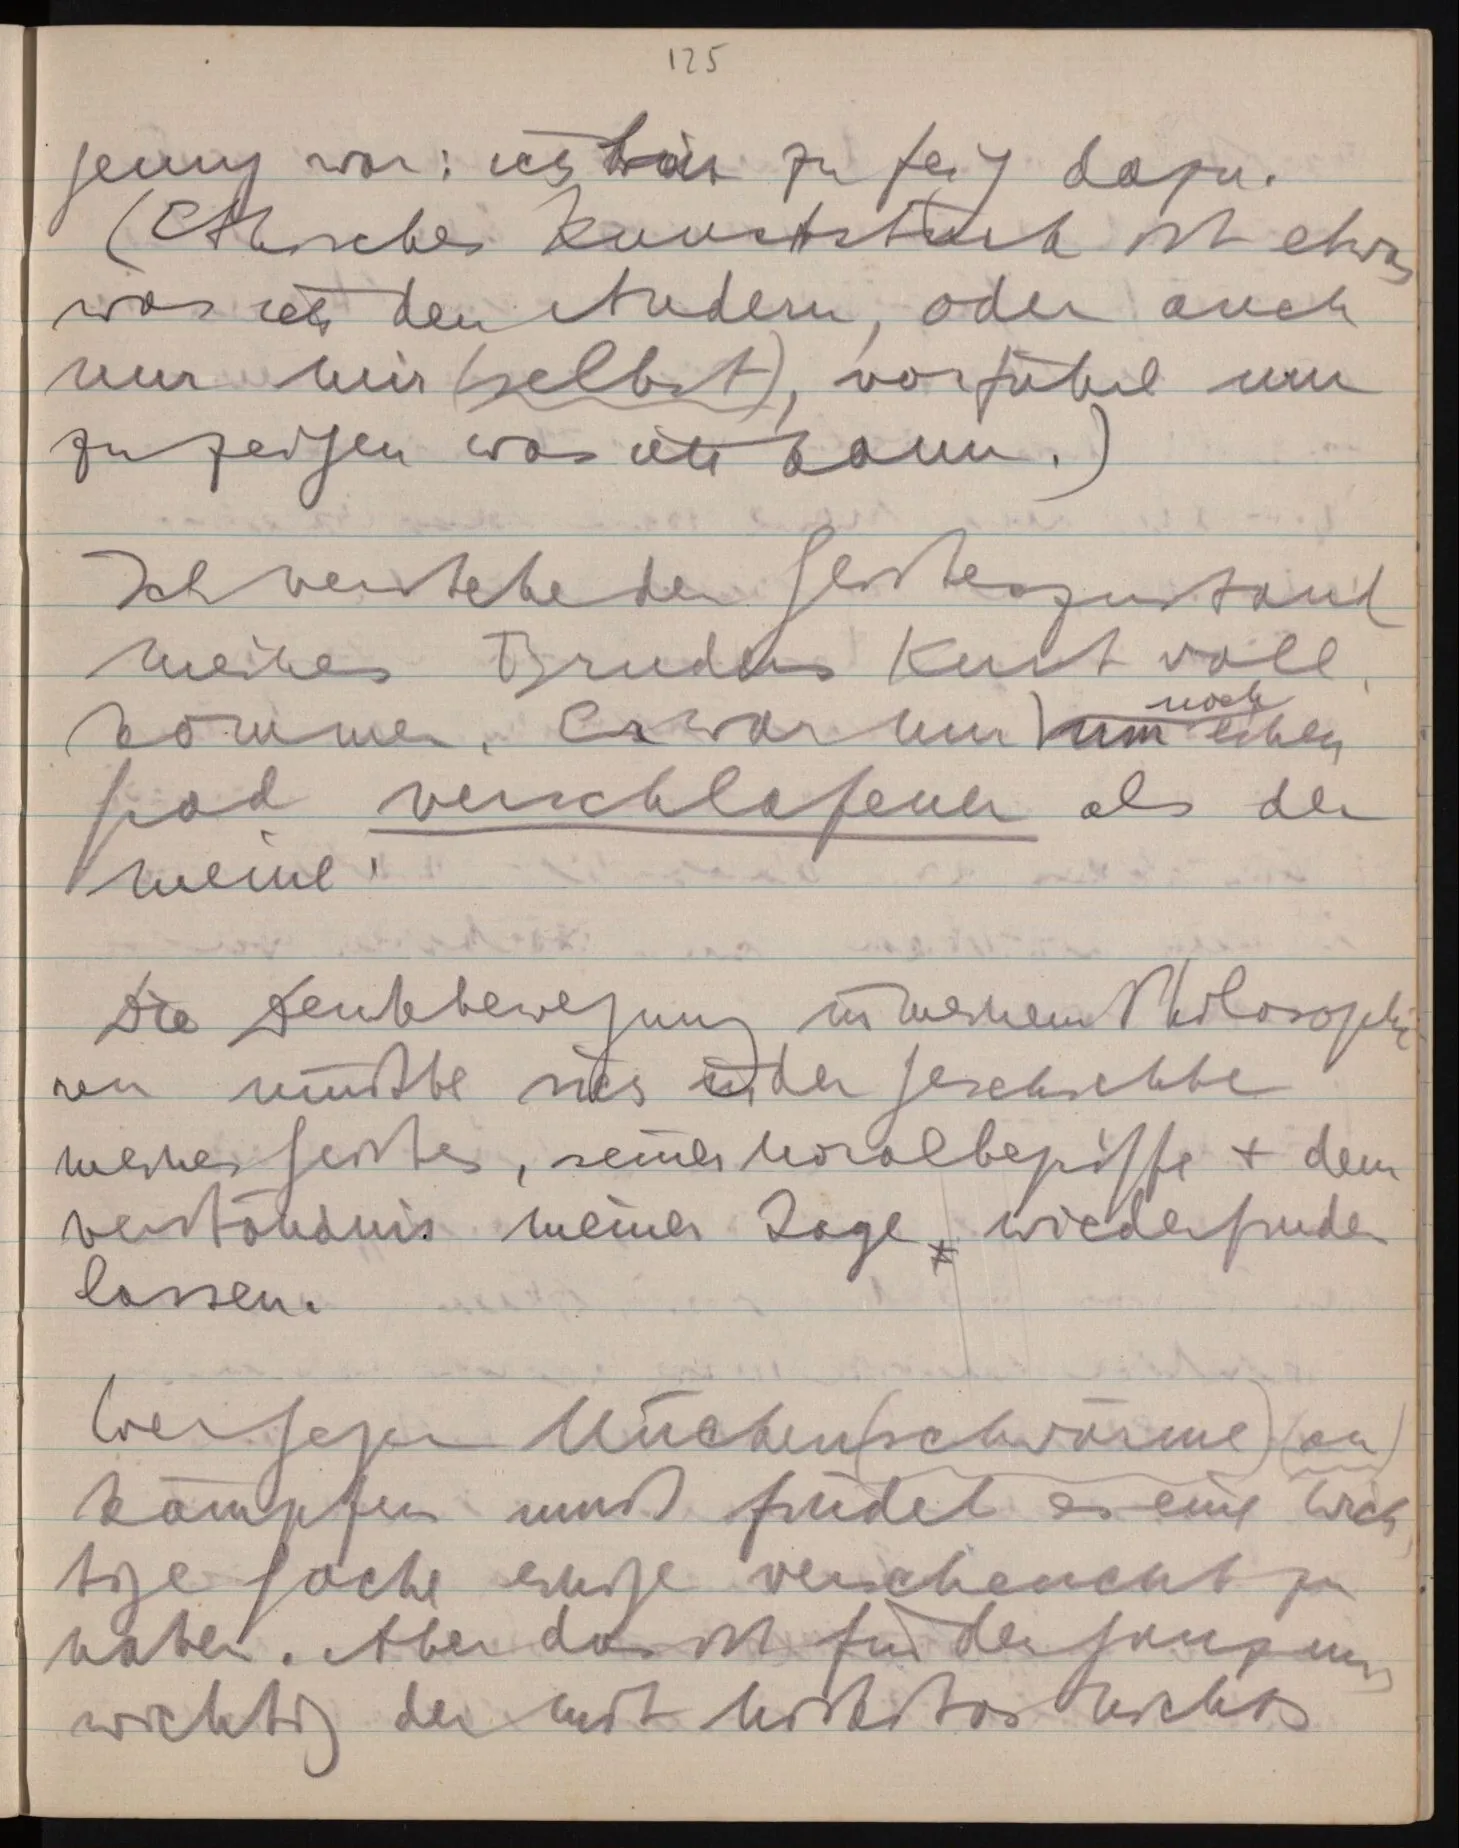 125
genug war: ich bin zu feig dazu.
(Ethisches Kunststück ist etwas
was ich den Andern, oder auch
nur mir (selbst), vorführe um
zu zeigen was ich kann.)
Ich verstehe den Geisteszustand
meines Bruders Kurt voll
kommen. Er war nur um noch einen
Grad verschlafener als der
meine.
Die Denkbewegung in meinem Philosophie
ren müßte sich in der Geschichte
meines Geistes, seiner Moralbegriffe + dem
Verständnis meiner Lage wiederfinden
lassen.
Wer gegen Mücken(schwärme) (an)
kämpfen muß findet es eine wich
tige Sache einige verscheucht zu
haben. Aber das ist für den ganz un
wichtig der mit Moskitos nichts